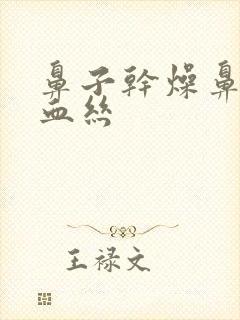 鼻子幹燥鼻
血絲
王禄文